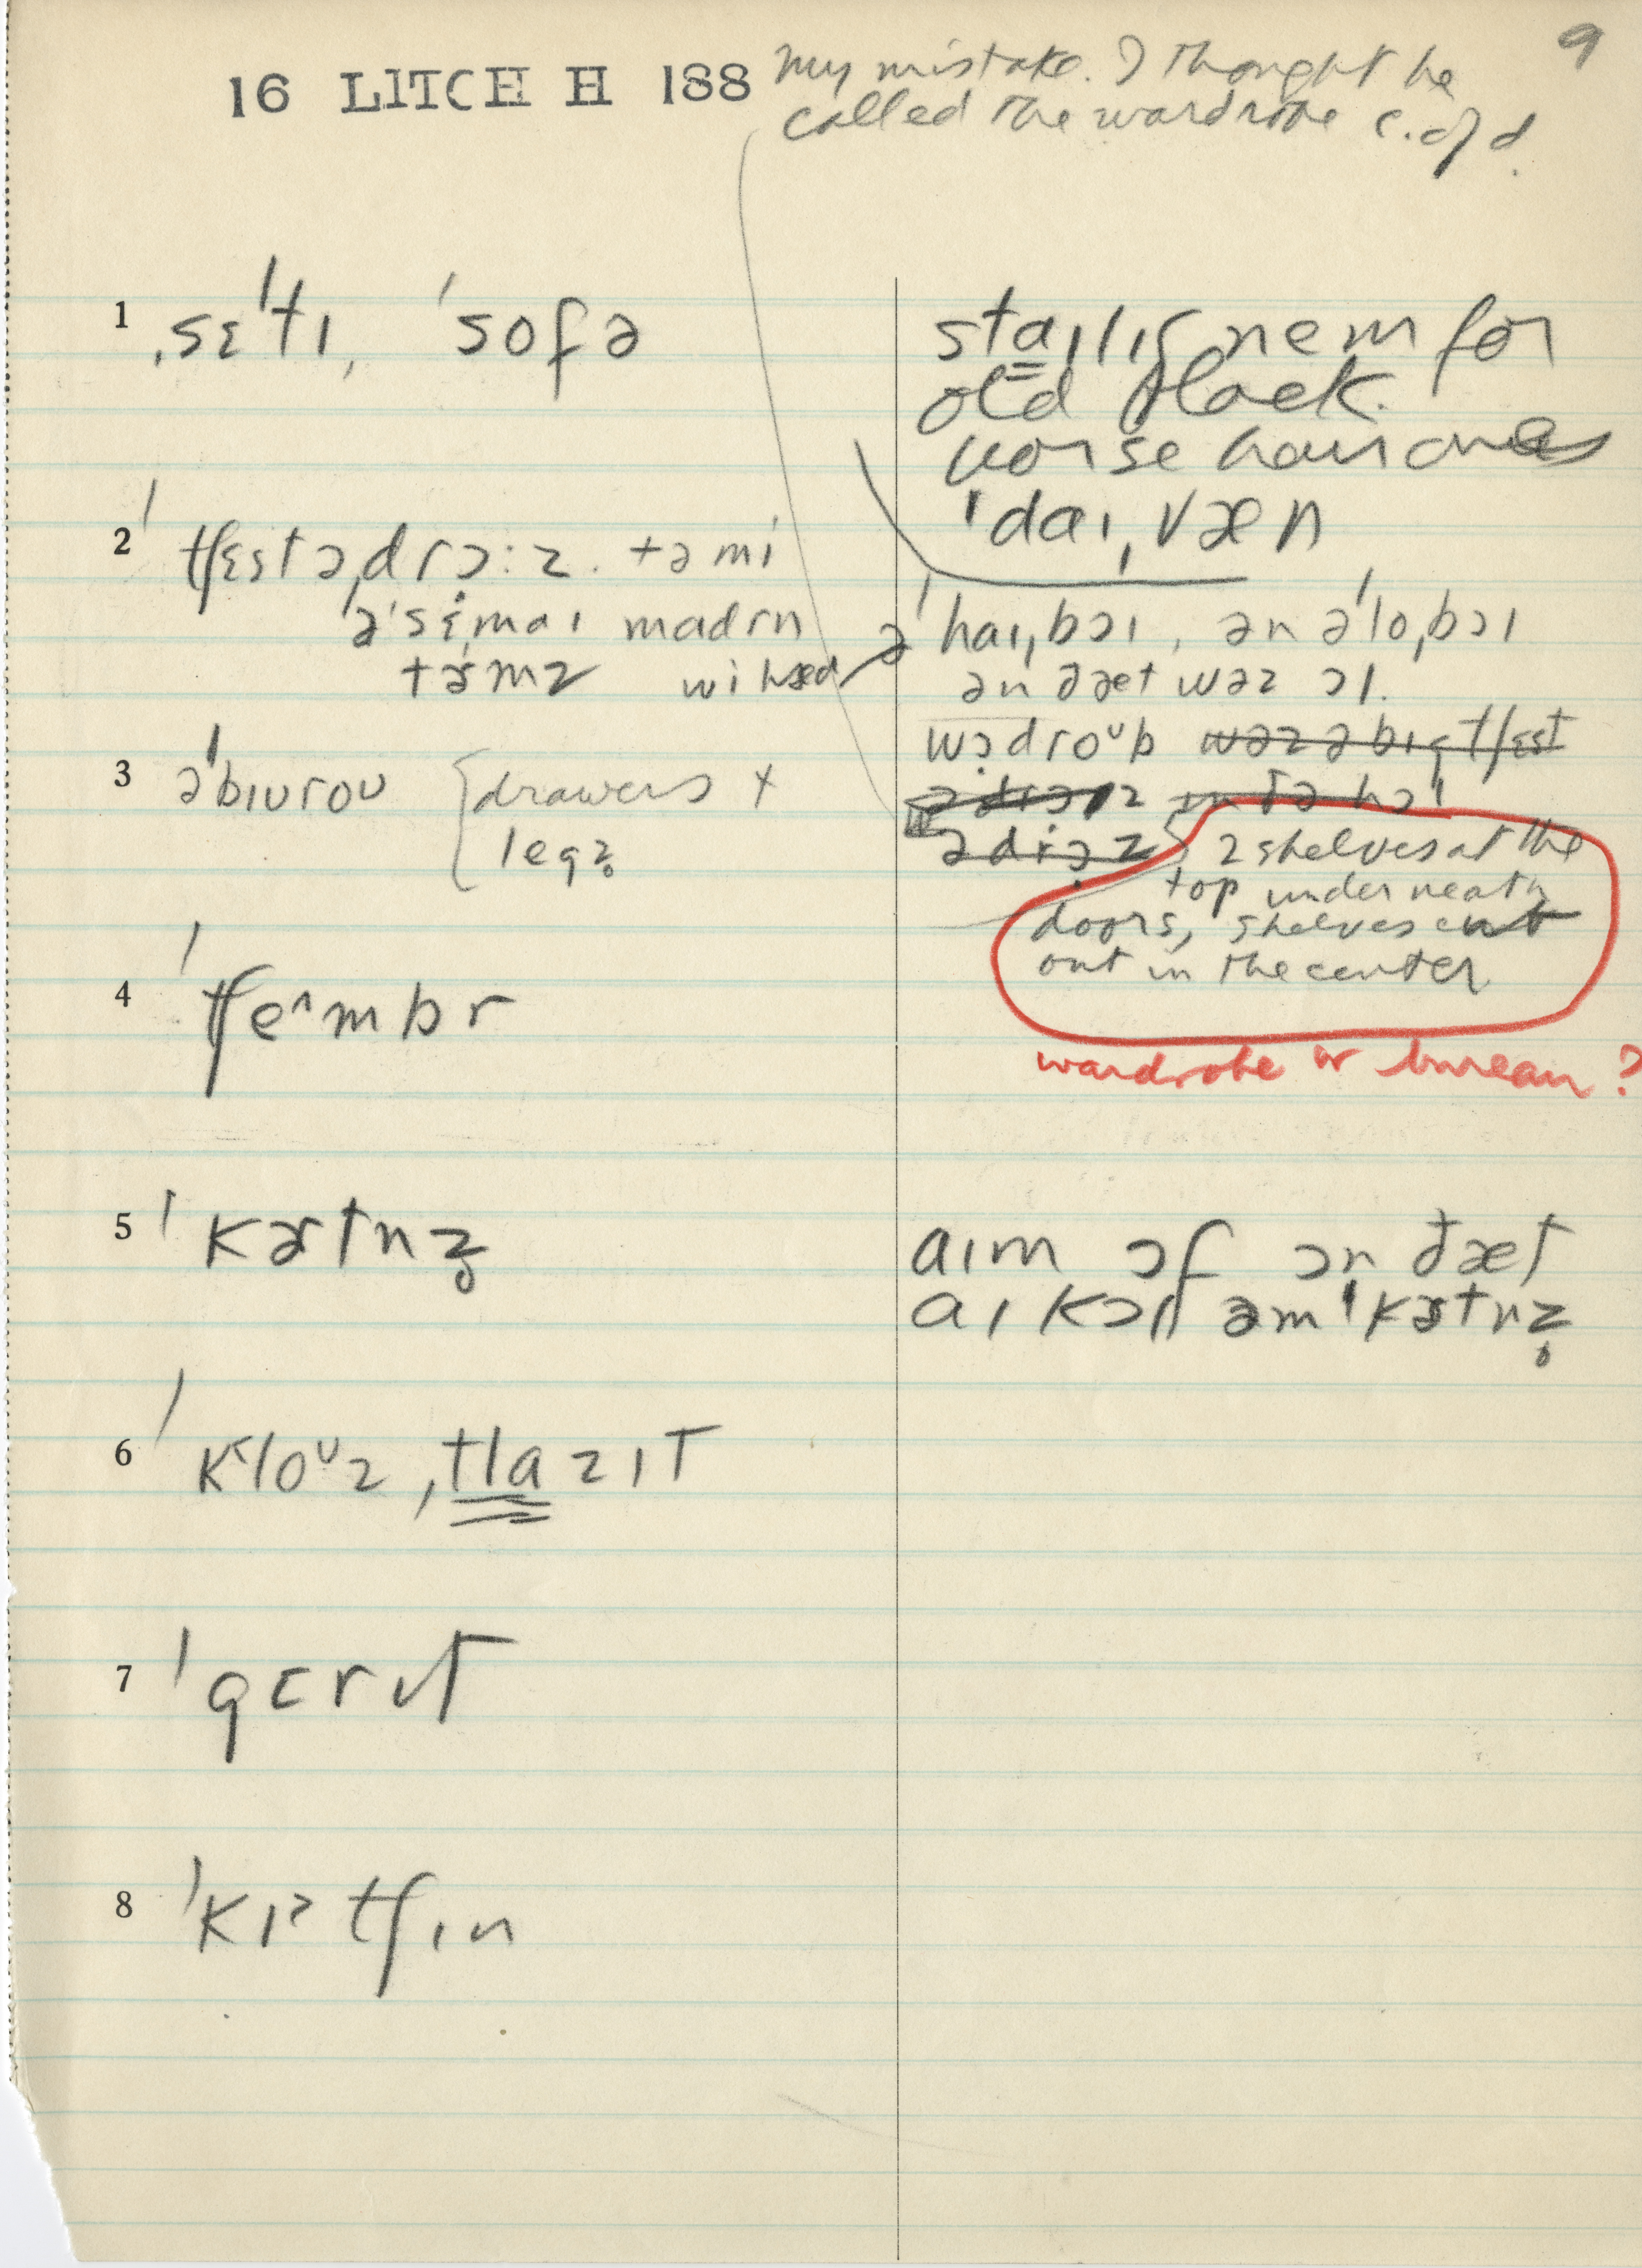 9
16 LITCH H 188 my mistake. I thought he
called the wardrobe c. of d.
1 ˌsɛˈtɪ, ˈsofə
staɪlɪʃ nem for
old black
horse hair ones
ˈdaɪˌvæn
2 ˈtʃɛstəˌdrɔ:z. təmi
əˈsɛmaɪ madrn
tɚmz wi hæd
ə ˈhaɪˌbɔɪ, ən əˈloˌbɔɪ
ən ðæt wəz ɔl.
wɔdroᵘb wəz ə bɪg tʃɛst
ədrɔz in ðə hɔl
ədrɔz
3 əˈbɪuroʊ {drawers +
legz̥
2 shelves at the
top underneath
doors, shelves cut
out in the center
wardrobe or bureau?
4 ˈtʃe^mbr
5 ˈkɚtnz̥
aɪm ɔf ɔn ðæt
aɪ kɔll əm ˈkɚtnz̥
6 ˈkloᵘz ˌtlazɪt
7 ˈgɛrɪt
8 ˈkɪᵊtʃɪn